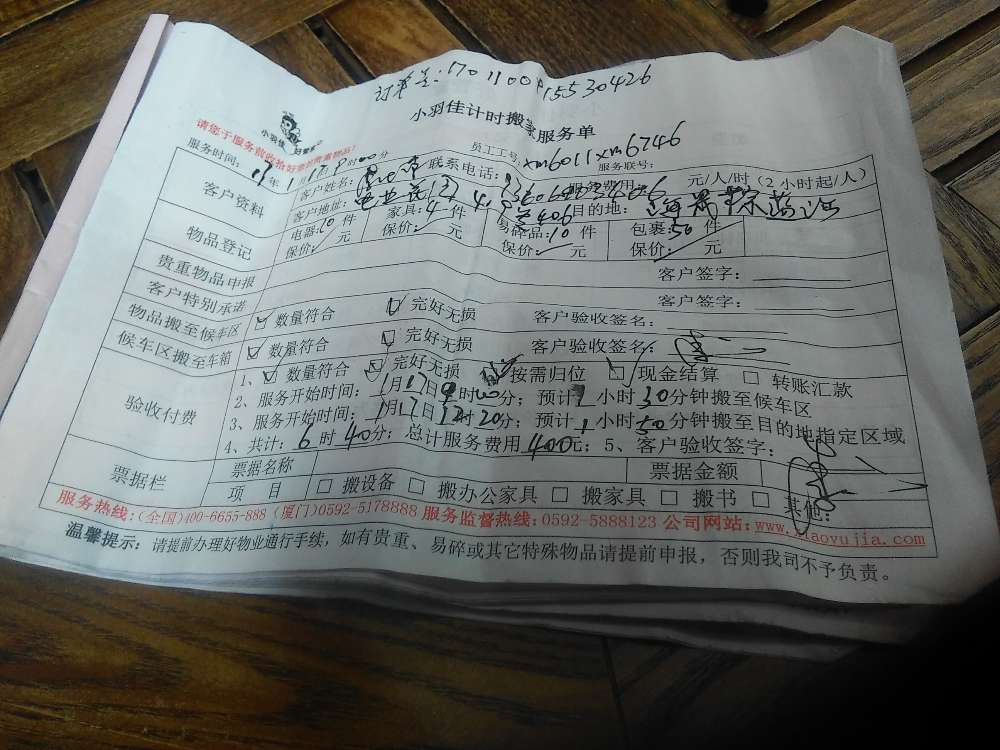 订单号:1701100415530426
小羽佳计时搬家服务单
小羽佳 好管家
请您于服务前收拾好您的贵重物品!
员工工号:xm6011 xm6746
服务时间:17年1月17日9时00分
服务联号:
客户资料
客户姓名: 联系电话: 服务费用 元/人/时(2小时起/人)
客户地址: 目的地:
物品登记
电器:10件 家具:4件 易碎品:10件 包裹:50件
保价: 元 保价: 元 保价: 元 保价: 元
贵重物品申报 客户签字:
客户特别承诺 客户签字:
物品搬至候车区 数量符合 完好无损 客户验收签名:
候车区搬至车箱 数量符合 完好无损 客户验收签名:
验收付费
1、数量符合 完好无损 按需归位 现金结算 转账汇款
2、服务开始时间:1月17日9时00分;预计1小时30分钟搬至候车区
3、服务开始时间:1月17日12时20分;预计1小时50分钟搬至目的地指定区域
4、共计:6时40分;总计服务费用400元;5、客户验收签字:
票据栏 票据名称 票据金额
项 目 搬设备 搬办公家具 搬家具 搬书 其他:
服务热线:(全国)400-6655-888 (厦门)0592-5178888 服务监督热线:0592-5888123 公司网站:www.xiaoyujia.com
温馨提示:请提前办理好物业通行手续,如有贵重、易碎或其它特殊物品请提前申报,否则我司不予负责。